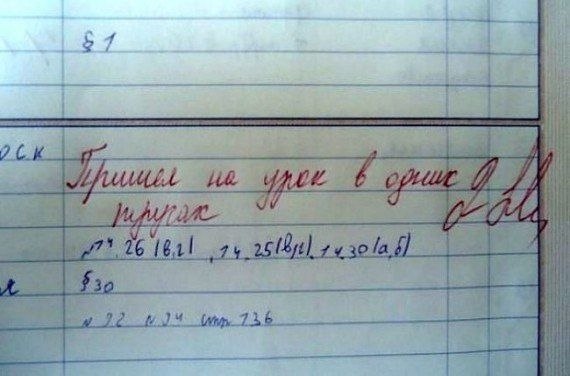 § 1
оск
Пришел на урок в одних
трусах
№14.26 (в,г), 14.25(в,г), 14.30(а,б)
я
§30
№ 92 № 94 стр 136